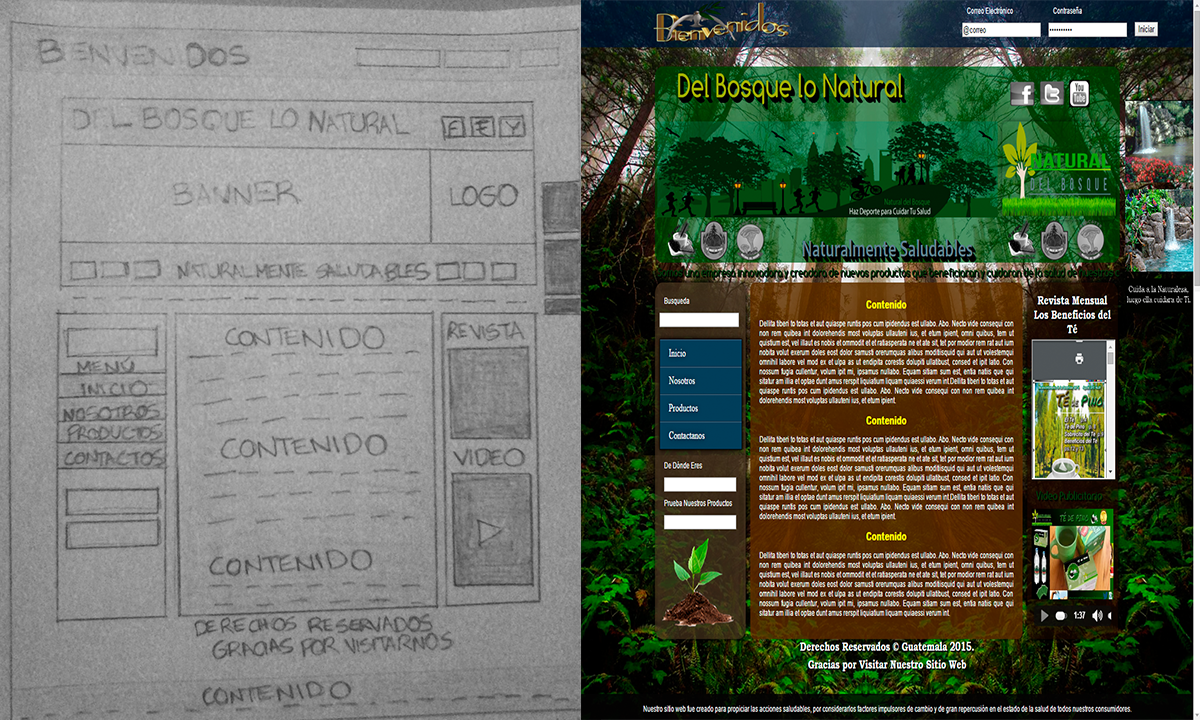 BIENVENIDOS
DEL BOSQUE LO NATURAL
F
E
Y
BANNER
LOGO
NATURALMENTE SALUDABLES
CONTENIDO
REVISTA
MENÚ
INICIO
NOSOTROS
PRODUCTOS
CONTACTOS
CONTENIDO
VIDEO
CONTENIDO
DERECHOS RESERVADOS
GRACIAS POR VISITARNOS
CONTENIDO
Bienvenidos
Correo Electrónico
Contraseña
@correo
Iniciar
Del Bosque lo Natural
You
Tube
NATURAL
DEL BOSQUE
Natural del Bosque
Haz Deporte para Cuidar Tu Salud
Naturalmente Saludables
una empresa innovadora y creadora de nuevos productos que beneficiaran y cuidaran de la salud de
Cuida a la Naturaleza,
luego ella cuidara de Ti.
Busqueda
Inicio
Nosotros
Productos
Contactanos
De Dónde Eres
Prueba Nuestros Productos
Contenido
Dellita tiberi to totas et aut quiaspe runtis pos cum ipidendus est ullabo. Abo. Necto vide consequi con
non rem quibea int dolorehendis most voluptas ullauteni ius, et etum ipient, omni quibus, tem ut
quistium est, vel illaut es nobis et ommodit et et ratiasperata ne et ate sit, tet por modior rem rat aut ium
nobita volut exerum doles eost dolor samusti orerumquas alibus moditisquid qui aut ut volestemqui
omnihil labore vel mod ex et ulpa as ut endipita corestis dolupti ullabutiisci dolut, consed et ipit latio. Con
nossum fugia cullentur, volum ipit mi, ipsamus nullabo. Equam sitiam sum est, entia natiis que qui
sitatur am illia et optae dunt amus rerspit liquiatium liquam quiaessi verum int.Dellita tiberi to totas et aut
quiaspe runtis pos cum ipidendus est ullabo. Abo. Necto vide consequi con non rem quibea int
dolorehendis most voluptas ullauteni ius, et etum ipient.
Contenido
Dellita tiberi to totas et aut quiaspe runtis pos cum ipidendus est ullabo. Abo. Necto vide consequi con
non rem quibea int dolorehendis most voluptas ullauteni ius, et etum ipient, omni quibus, tem ut
quistium est, vel illaut es nobis et ommodit et et ratiasperata ne et ate sit, tet por modior rem rat aut ium
nobita volut exerum doles eost dolor samusti orerumquas alibus moditisquid qui aut ut volestemqui
omnihil labore vel mod ex et ulpa as ut endipita corestis dolupti ullabutiisci dolut, consed et ipit latio. Con
nossum fugia cullentur, volum ipit mi, ipsamus nullabo. Equam sitiam sum est, entia natiis que qui
sitatur am illia et optae dunt amus rerspit liquiatium liquam quiaessi verum int.Dellita tiberi to totas et aut
quiaspe runtis pos cum ipidendus est ullabo. Abo. Necto vide consequi con non rem quibea int
dolorehendis most voluptas ullauteni ius, et etum ipient.
Contenido
Dellita tiberi to totas et aut quiaspe runtis pos cum ipidendus est ullabo. Abo. Necto vide consequi con
non rem quibea int dolorehendis most voluptas ullauteni ius, et etum ipient, omni quibus, tem ut
quistium est, vel illaut es nobis et ommodit et et ratiasperata ne et ate sit, tet por modior rem rat aut ium
nobita volut exerum doles eost dolor samusti orerumquas alibus moditisquid qui aut ut volestemqui
omnihil labore vel mod ex et ulpa as ut endipita corestis dolupti ullabutiisci dolut, consed et ipit latio. Con
nossum fugia cullentur, volum ipit mi, ipsamus nullabo. Equam sitiam sum est, entia natiis que qui
sitatur am illia et optae dunt amus rerspit liquiatium liquam quiaessi verum int.
Revista Mensual
Los Beneficios del
Té
TÉ de Pino
Video Publicitario
TÉ DE PINO
1:37
Derechos Reservados © Guatemala 2015.
Gracias por Visitar Nuestro Sitio Web
Nuestro sitio web fue creado para propiciar las acciones saludables, por considerarlos factores impulsores de cambio y de gran repercusión en el estado de la salud de todos nuestros consumidores.